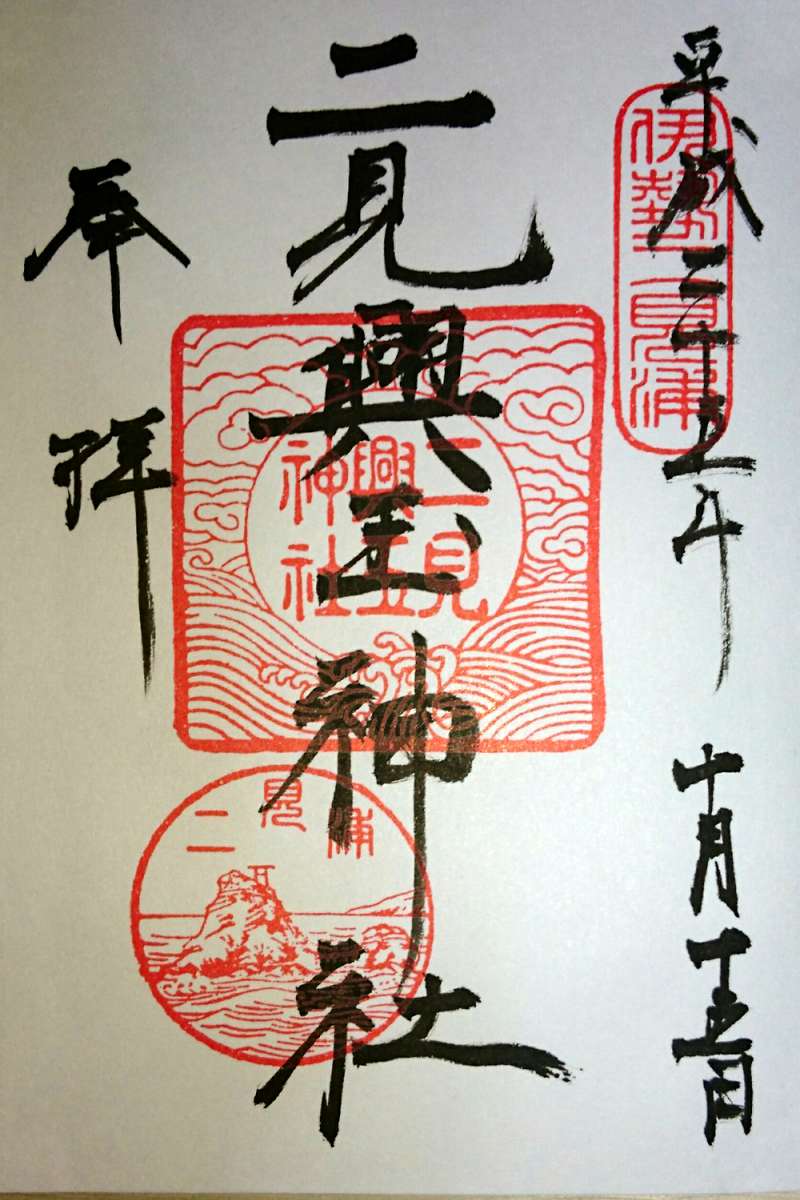 平成二十五年 十月十五日
伊勢二見浦
二見興玉神社
二見
興玉
神社
二見浦
奉拝